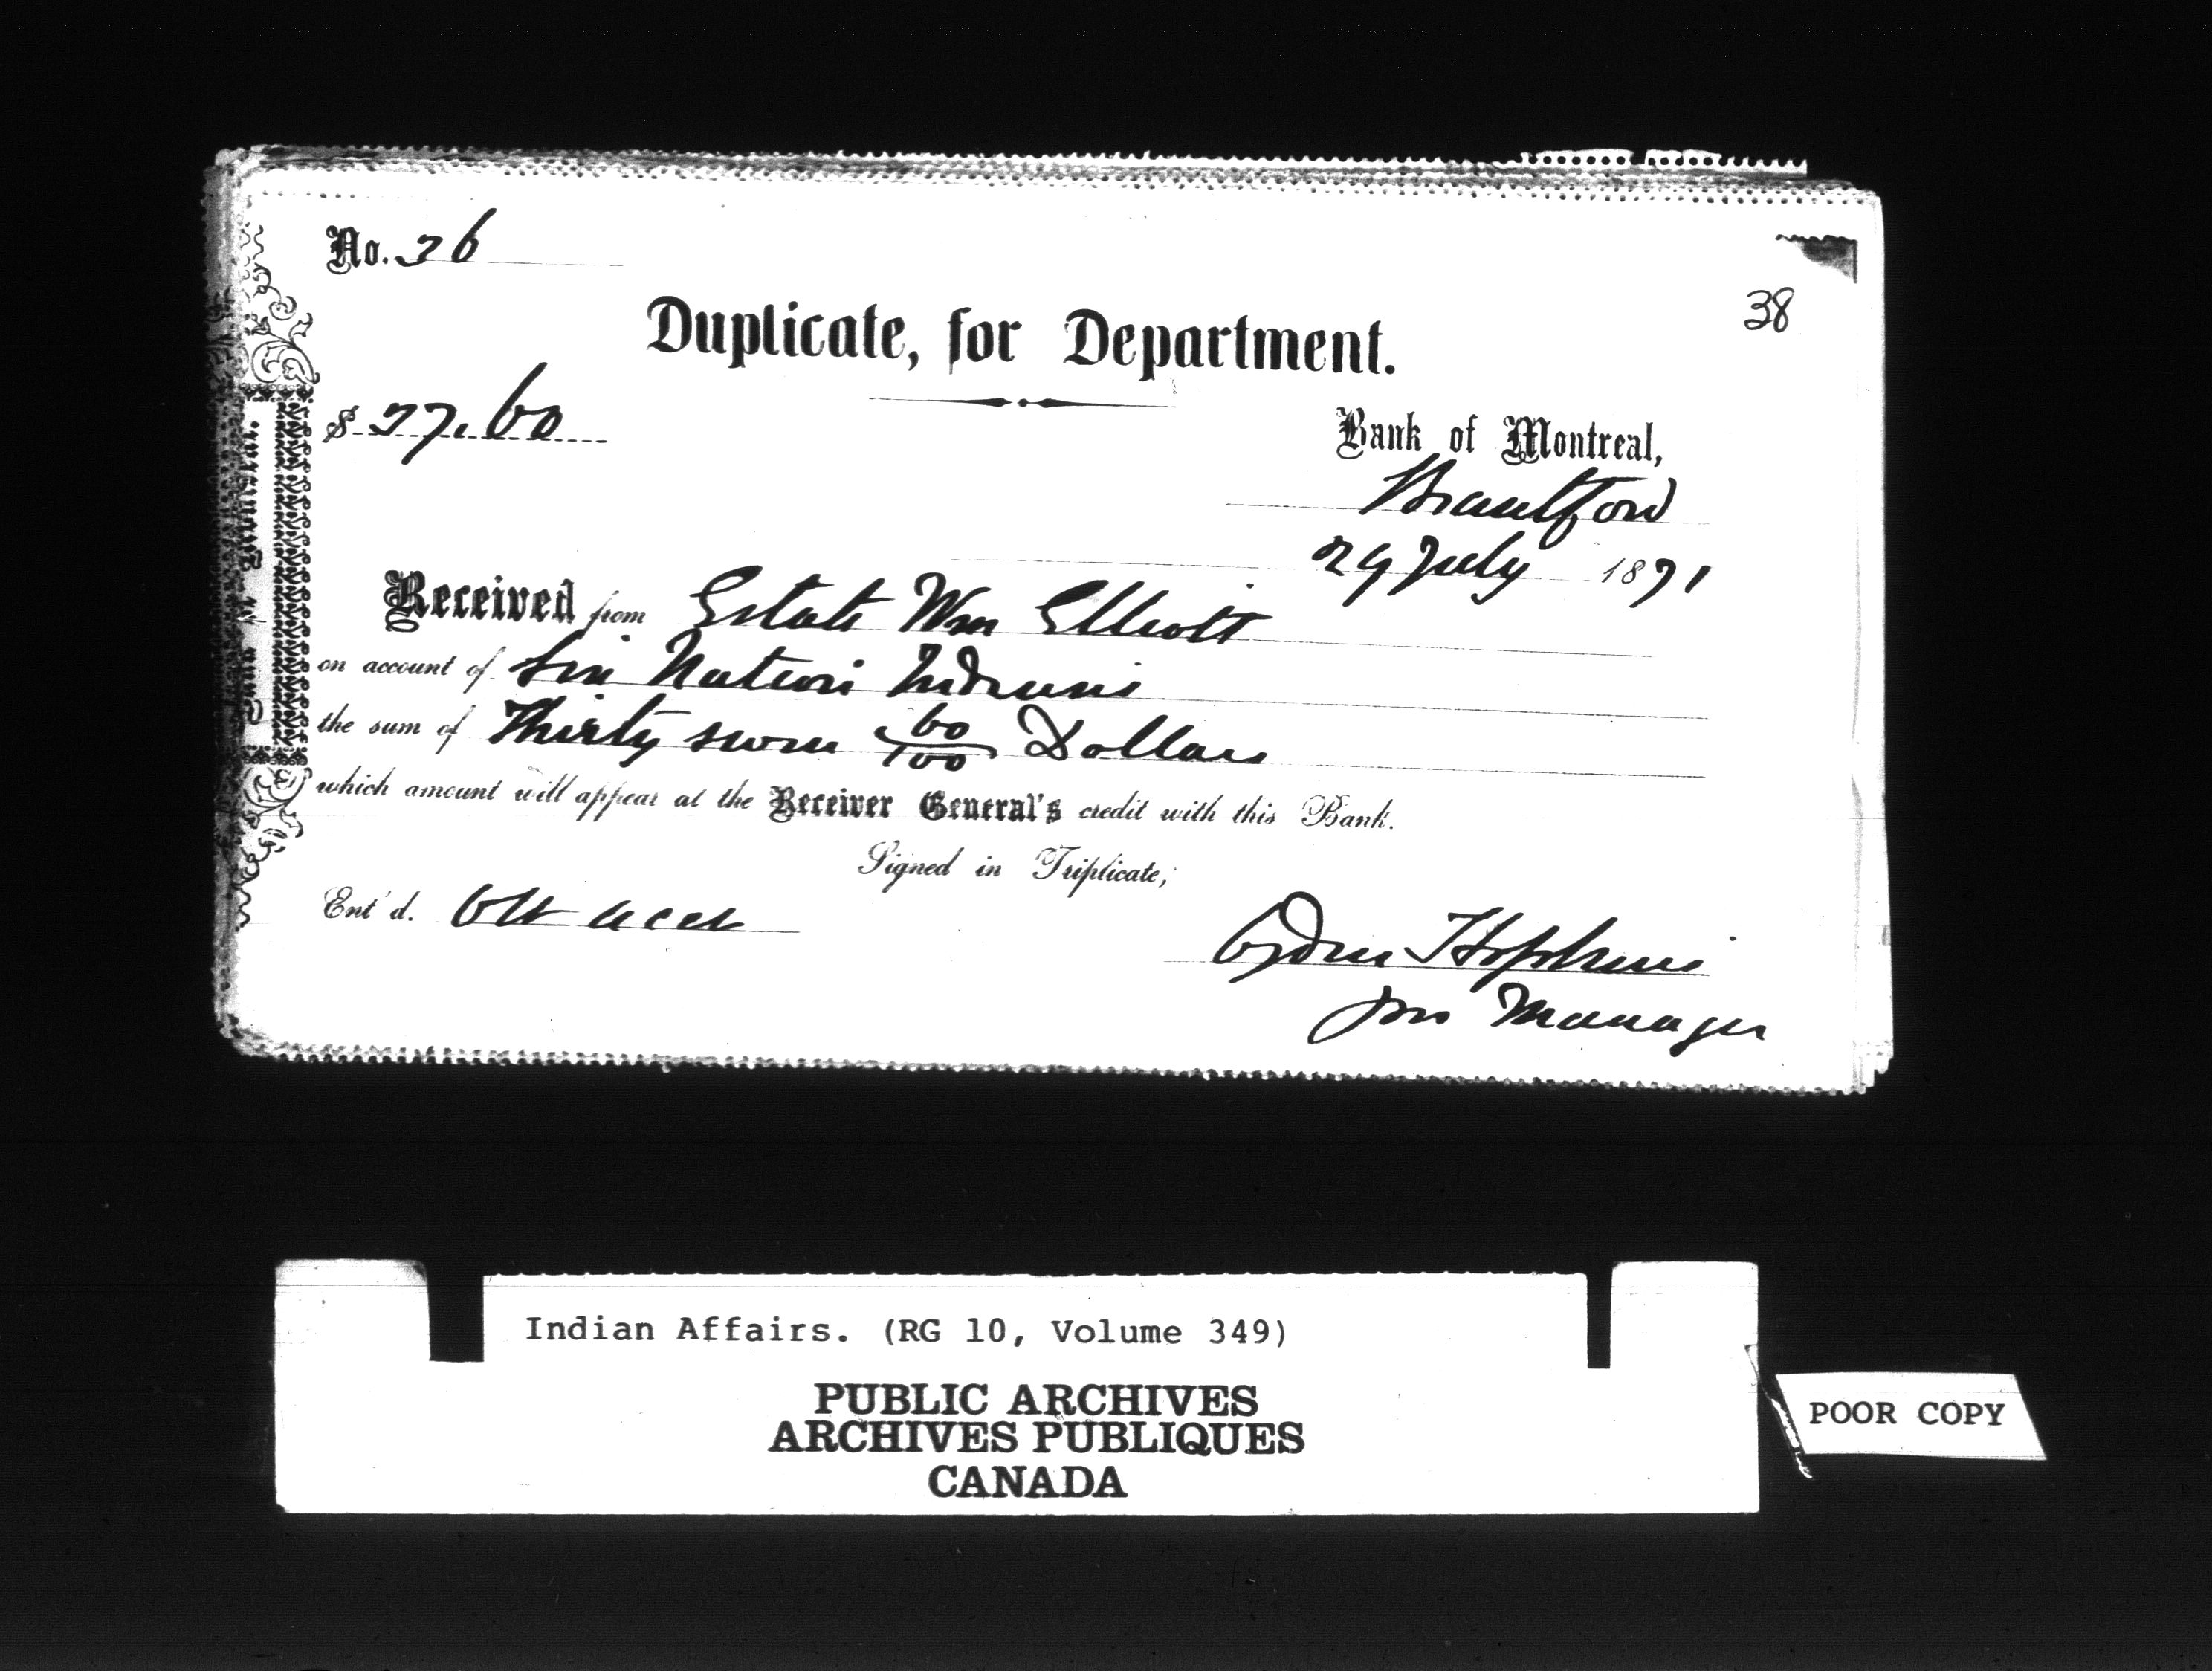 No. 36
38
Duplicate, for Department.
$ 37.60
Bank of Montreal,
Brantford
29 July 1871
Received from Estate Wm Elliott
on account of Six Nation Indians
the sum of Thirty seven 60/100 Dollars
which amount will appear at the Receiver General's credit with this Bank.
Signed in Triplicate,
Ent'd.
Hopkins
Manager
Bank of Montreal.
Indian Affairs. (RG 10, Volume 349)
PUBLIC ARCHIVES
ARCHIVES PUBLIQUES
CANADA
POOR COPY